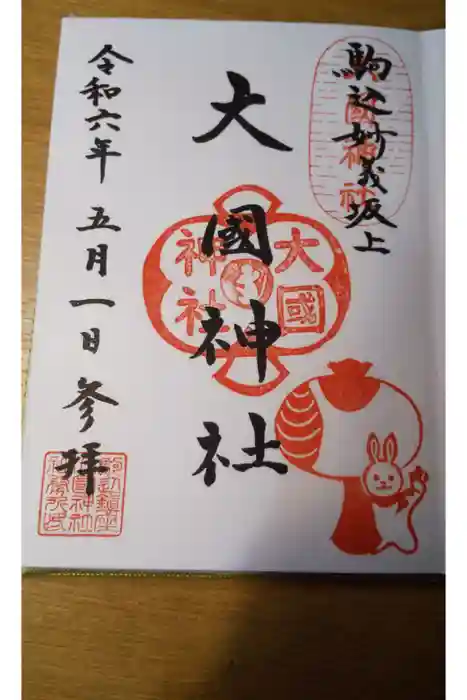 駒込妙義坂上
大國神社
大國
神社
令和六年 五月一日 参拝